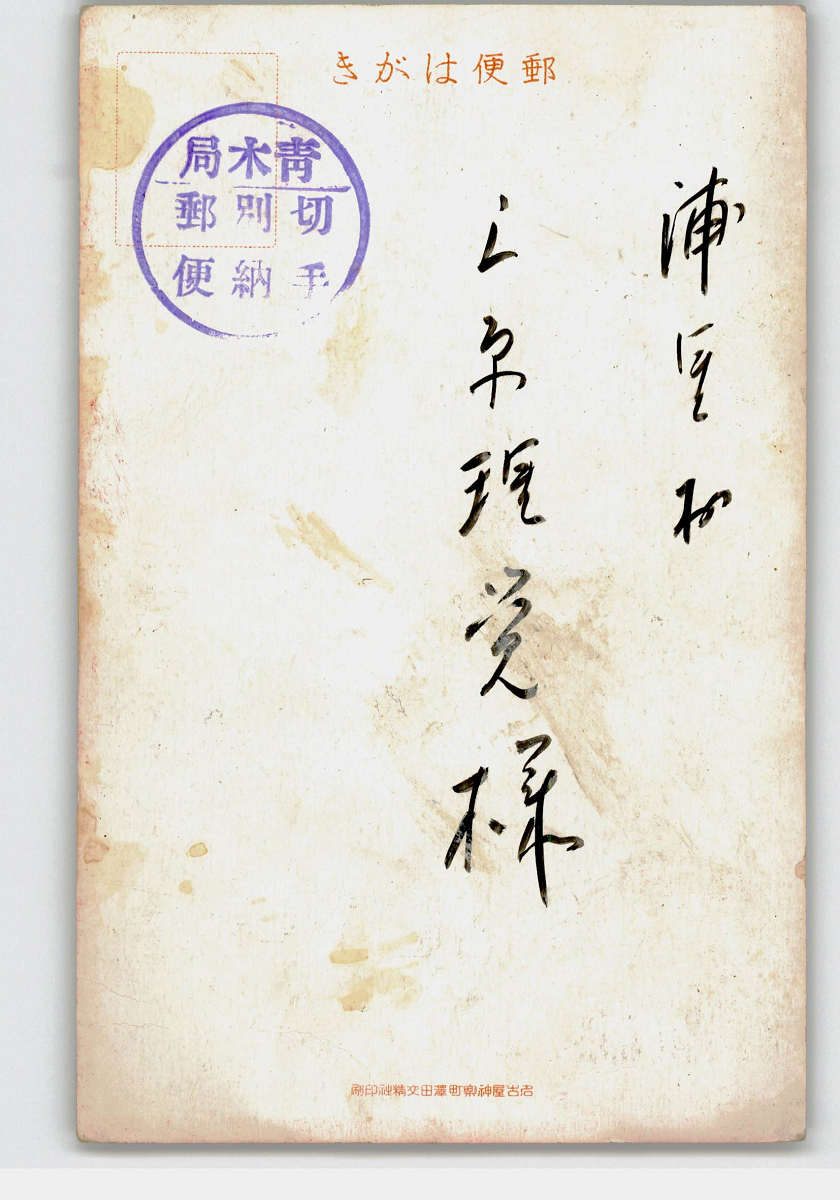 郵便はがき
青木局
切手
別納
郵便
浦里村
上原理覚様
名古屋神 町澤田文精社印刷